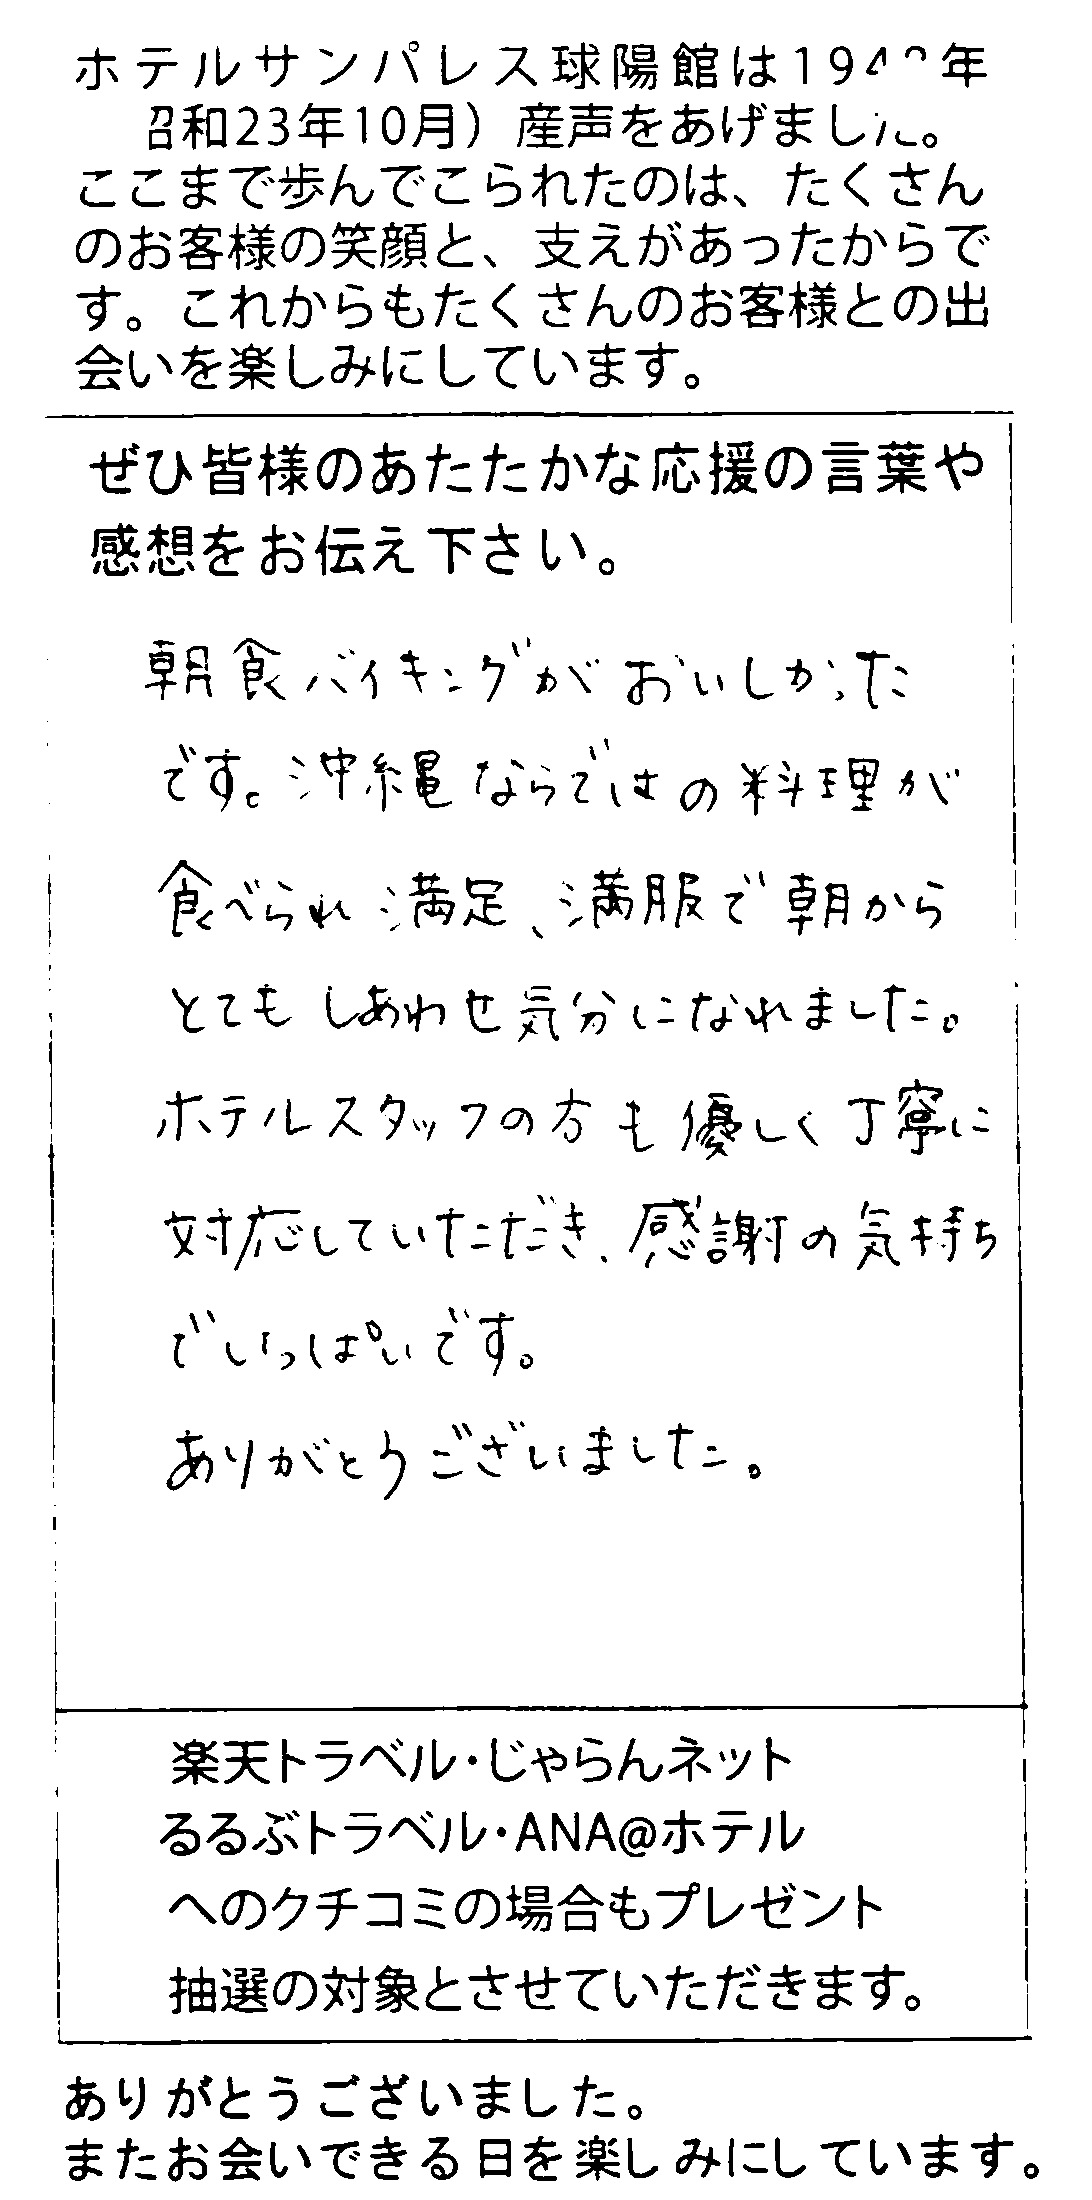 ホテルサンパレス球陽館は19 年
昭和23年10月）産声をあげました。
ここまで歩んでこられたのは、たくさん
のお客様の笑顔と、支えがあったからで
す。これからもたくさんのお客様との出
会いを楽しみにしています。
ぜひ皆様のあたたかな応援の言葉や
感想をお伝え下さい。
朝食バイキングがおいしかった
です。沖縄ならではの料理が
食べられ満足、満服で朝から
とてもしあわせ気分になれました。
ホテルスタッフの方も優しく丁寧に
対応していただき、感謝の気持ち
でいっぱいです。
ありがとうございました。
楽天トラベル・じゃらんネット
るるぶトラベル・ANA@ホテル
へのクチコミの場合もプレゼント
抽選の対象とさせていただきます。
ありがとうございました。
またお会いできる日を楽しみにしています。